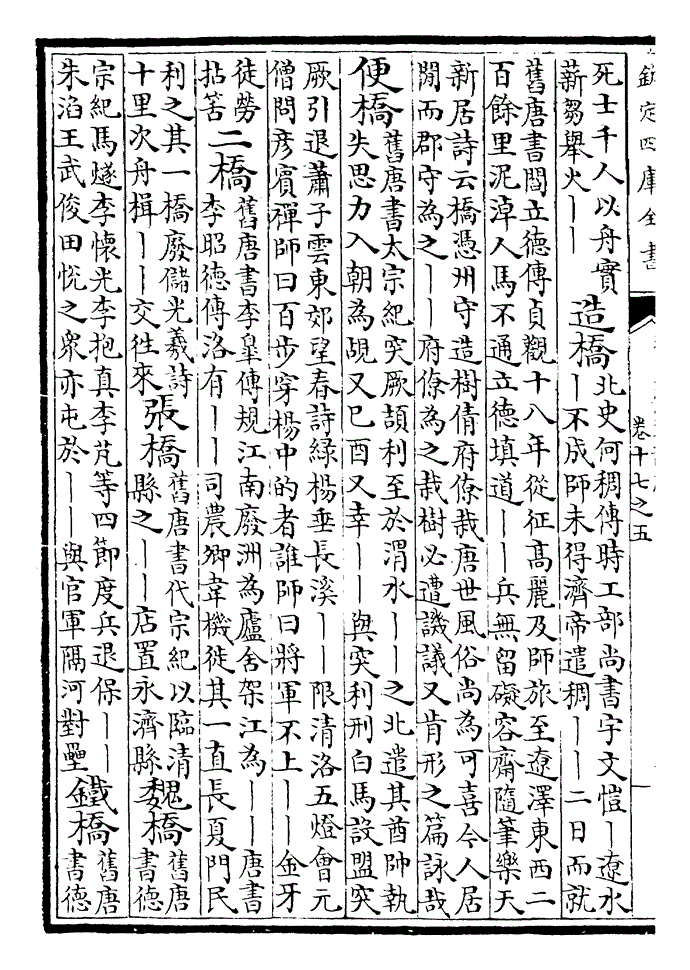 欽定四庫全書
卷十七之五
死士千人以舟實
薪芻舉火丨丨
造橋
北史何稠傳時工部尚書宇文愷丨遼水
丨不成師未得濟帝遣稠丨丨二日而就
舊唐書閻立德傳貞觀十八年從征髙麗及師旅至遼澤東西二
百餘里泥淖人馬不通立德填道丨丨兵無留礙容齋隨筆樂天
新居詩云橋憑州守造樹倩府僚栽唐世風俗尚為可喜今人居
閒而郡守為之丨丨府僚為之栽樹必遭譏議又肯形之篇詠哉
便橋
舊唐書太宗紀突厥頡利至於渭水丨丨之北遣其酋帥執
失思力入朝為覘又巳酉又幸丨丨與突利刑白馬設盟突
厥引退蕭子雲東郊望春詩綠楊垂長溪丨丨限清洛五燈會元
僧問彦賓禪師曰百步穿楊中的者誰師曰將軍不上丨丨金牙
徒勞
拈筈
二橋
舊唐書李臯傳規江南廢洲為廬舍架江為丨丨唐書
李昭德傳洛有丨丨司農卿韋機徙其一直長夏門民
利之其一橋廢儲光羲詩
十里次舟楫丨丨交徃來
張橋
舊唐書代宗紀以臨清
縣之丨丨店置永濟縣
魏橋
舊唐
書德
宗紀馬燧李懷光李抱真李芃等四節度兵退保丨丨
朱滔王武俊田悦之衆亦屯於丨丨與官軍隔河對壘
鐵橋
舊唐
書德